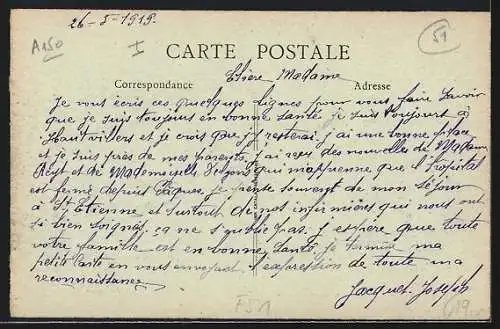 26-5-1919.
A150
I
51
CARTE POSTALE
Chère Madame
Correspondance
Adresse
Je vous écris ces quelques lignes pour vous faire savoir
que je suis toujours en bonne santé je suis toujours à
Hautvillers et je crois que j'y resterai j'ai une bonne place
et je suis près de mes parents j'ai reçu des nouvelles de Madame
et de Mademoiselle qui m'apprenne que l'hopital
est fermé depuit Paques, je pense souvent de mon Séjour
à St Etienne et surtout de nos infirmières qui nous ont
si bien soignés, ça ne s'oublie pas. J'espère que toute
votre famille est en bonne santé je termine ma
petite carte en vous envoyant l'expression de toute ma
reconnaissance
Jacquet Joseph